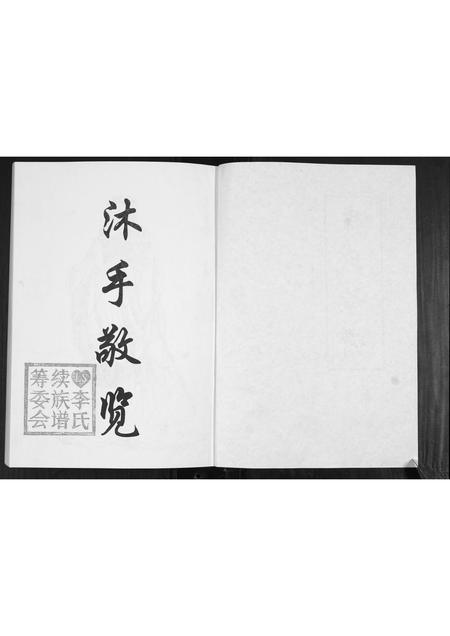 沐手敬览
LS李氏
续族谱
筹委会